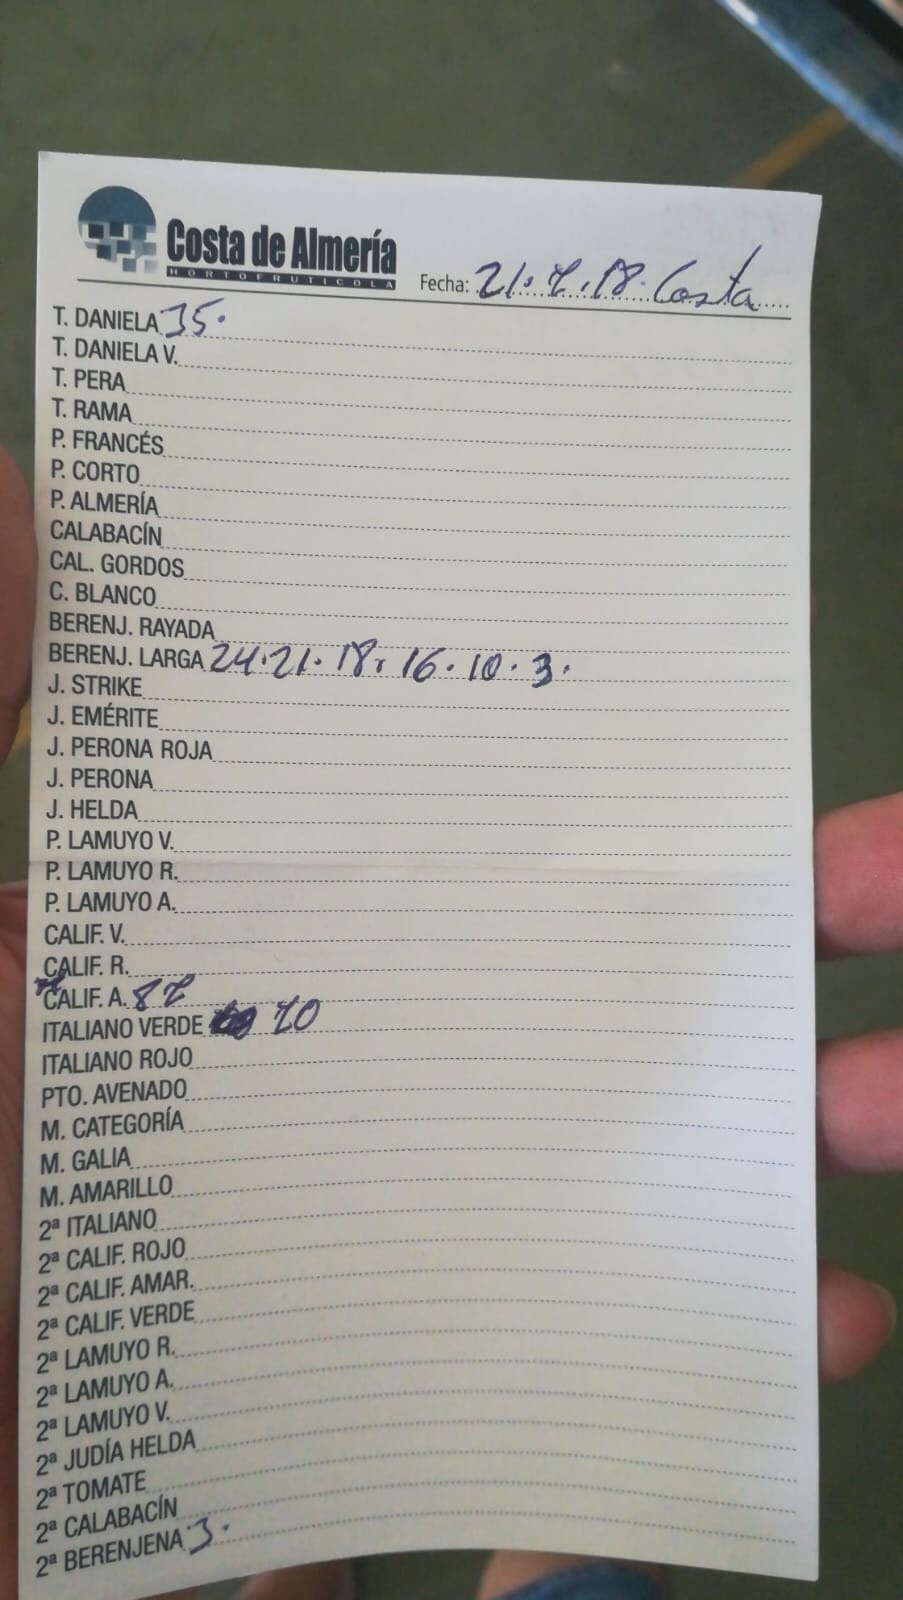 Costa de Almería
HORTOFRUTICOLA
Fecha: 21.7.18. Costa
T. DANIELA 35.
T. DANIELA V.
T. PERA
T. RAMA
P. FRANCÉS
P. CORTO
P. ALMERÍA
CALABACÍN
CAL. GORDOS
C. BLANCO
BERENJ. RAYADA
BERENJ. LARGA 24.21.18.16.10.3.
J. STRIKE
J. EMÉRITE
J. PERONA ROJA
J. PERONA
J. HELDA
P. LAMUYO V.
P. LAMUYO R.
P. LAMUYO A.
CALIF. V.
CALIF. R.
CALIF. A. 87
ITALIANO VERDE 70
ITALIANO ROJO
PTO. AVENADO
M. CATEGORÍA
M. GALIA
M. AMARILLO
2ª ITALIANO
2ª CALIF. ROJO
2ª CALIF. AMAR.
2ª CALIF. VERDE
2ª LAMUYO R.
2ª LAMUYO A.
2ª LAMUYO V.
2ª JUDÍA HELDA
2ª TOMATE
2ª CALABACÍN
2ª BERENJENA 3.